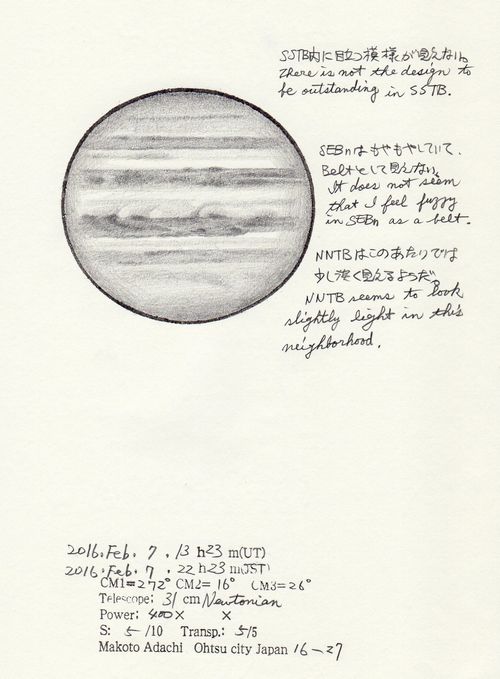 SSTB内に目立つ模様が見えない。
There is not the design to
be outstanding in SSTB.
SEBnはもやもやしていて、
Beltとして見えない。
It does not seem
that I feel fuzzy
in SEBn as a belt.
NNTBはこのあたりでは
少し淡く見えるようだ。
NNTB seems to look
slightly light in this
neighborhood.
2016. Feb. 7 . 13 h23 m(UT)
2016. Feb. 7 . 22 h23 m(JST)
CM1=272° CM2= 16° CM3=26°
Telescope: 31 cm Newtonian
Power: 400× ×
S: 5 /10 Transp.: 5/5
Makoto Adachi Ohtsu city Japan 16-27